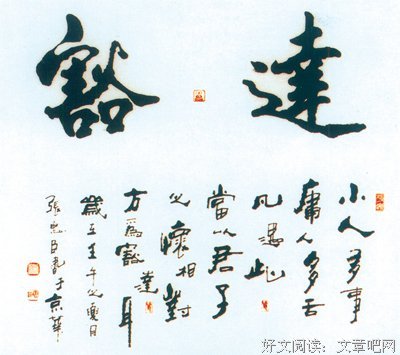 豁達
小人多事
庸人多舌
凡遇此
當以君子
之懷相對
方爲豁達耳
歲在壬午之夏日
張志和書于京華
好文阅读：文章吧网